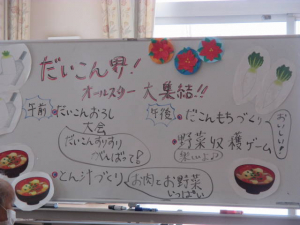 だいこん界!
オールスター 大集結!!
午前 ・だいこんおろし
大会
だいこんすりすり
がんばって!
・とん汁づくり
お肉とお野菜
いっぱい
午後 ・だいこんもちづくり
おいしいよ
・野菜収穫ゲーム